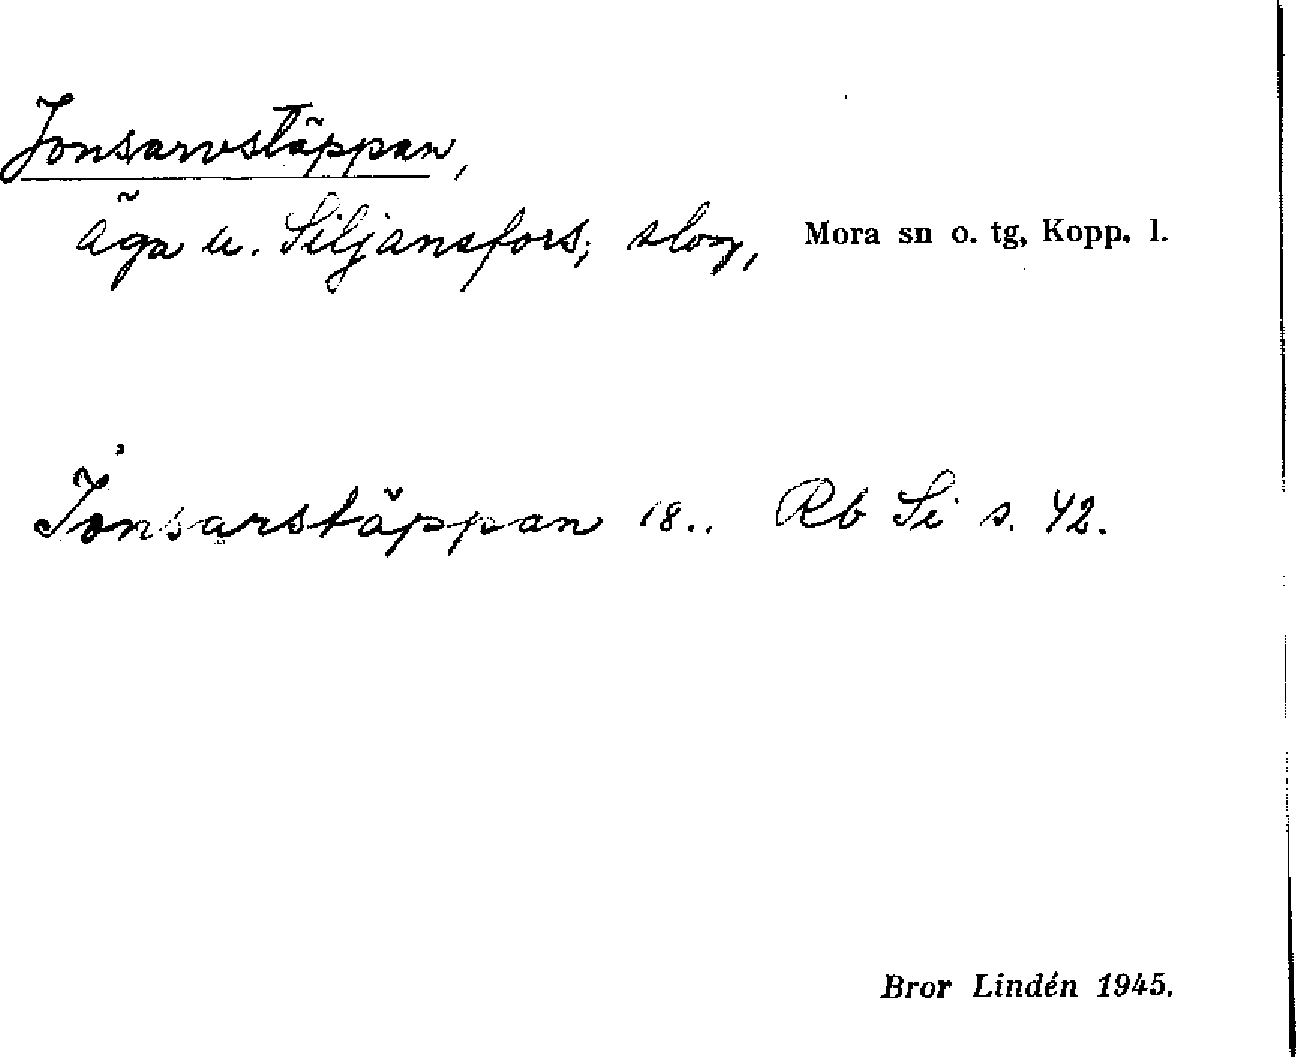 Jonsarvstäppan,
äga u. Siljansfors, slog, Mora sn o. tg, Kopp. l.
Jonsarstäppan 18.. Rb Si s. 42.
Bror Lindén 1945.